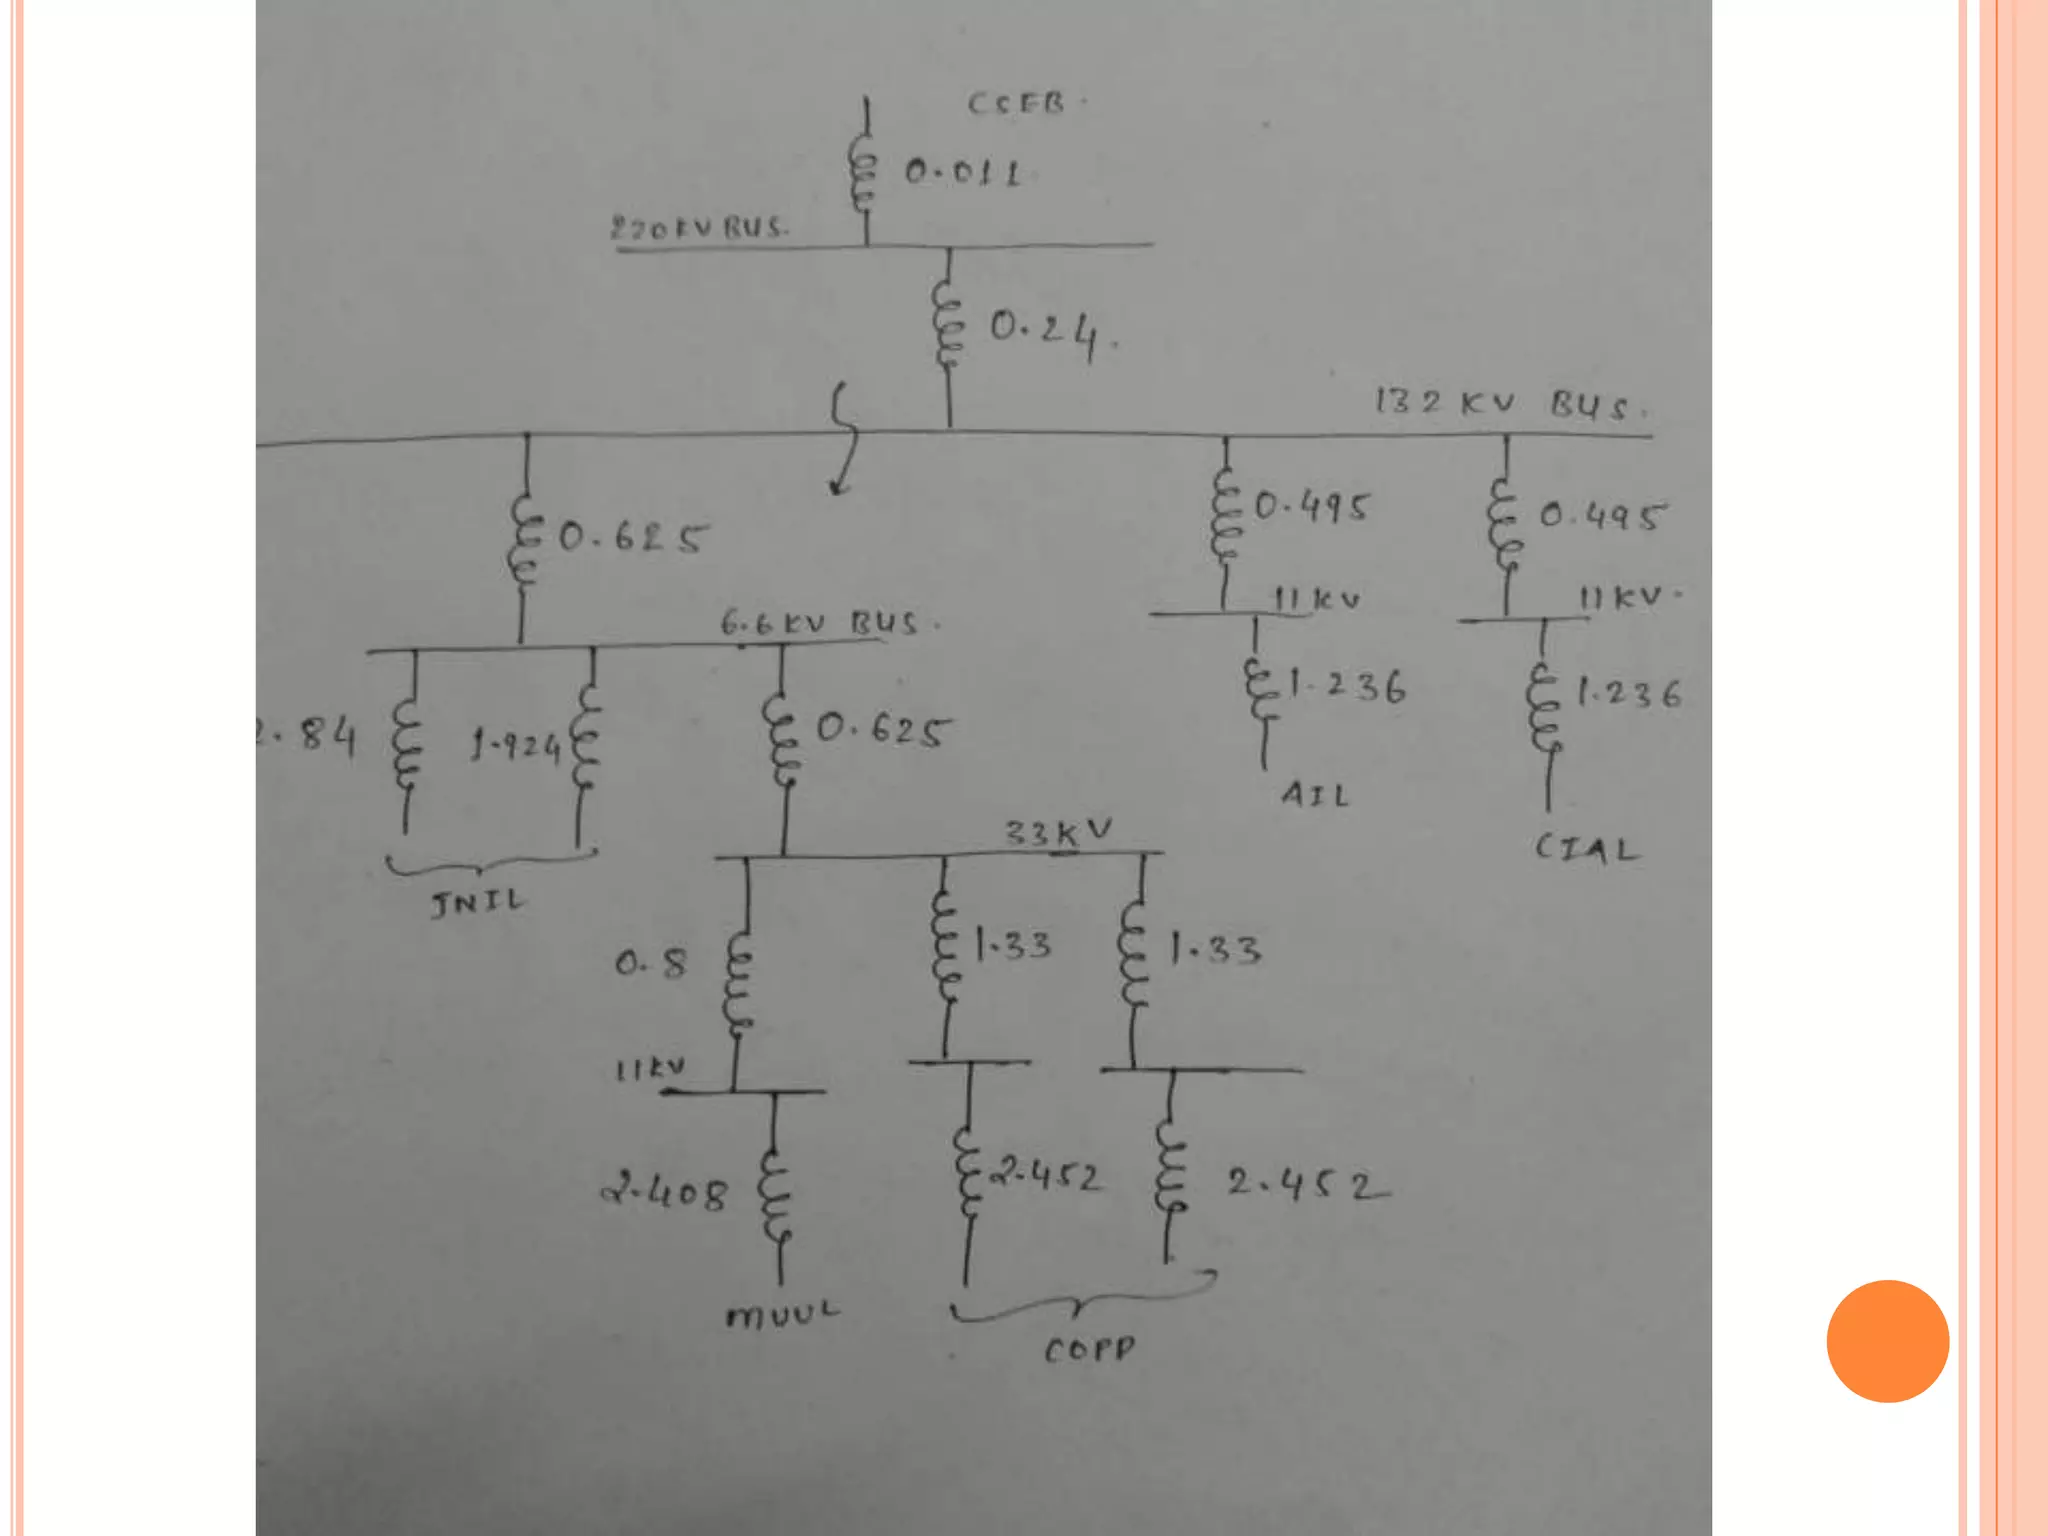 CSEB.
0.011
220KV BUS.
0.24.
132 KV BUS.
0.625
0.495
0.495
6.6 KV BUS.
11 KV
11 KV.
.84
1.924
0.625
1.236
1.236
AIL
CIAL
JNIL
33KV
0.8
1.33
1.33
11KV
2.408
2.452
2.452
MUUL
COPP